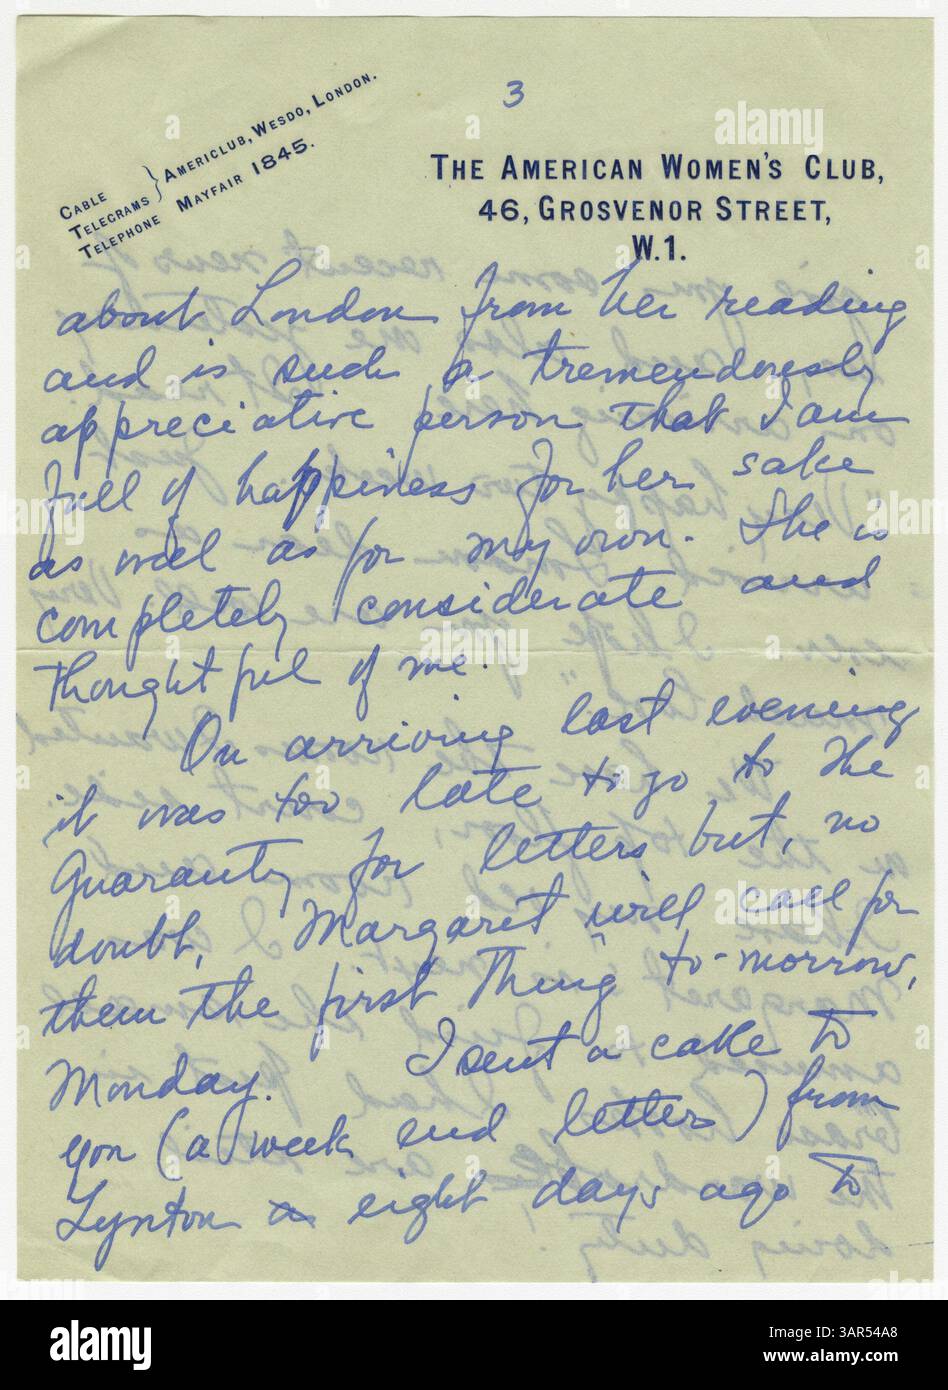 3
CABLE
TELEGRAMS } AMERICLUB, WESDO, LONDON.
TELEPHONE MAYFAIR 1845.
THE AMERICAN WOMEN'S CLUB,
46, GROSVENOR STREET,
W.1.
about London from her reading
and is such a tremendously
appreciative person that I am
full of happiness for her sake
as well as for my own. She is
completely considerate and
thoughtful of me.
On arriving last evening
it was too late to go to the
Guaranty for letters but, no
doubt, Margaret will call for
them the first "thing" to-morrow,
Monday. I sent a cable to
you (a week end letter) from
Lynton eight days ago to
alamy
Image ID: 3AR54A8
www.alamy.com